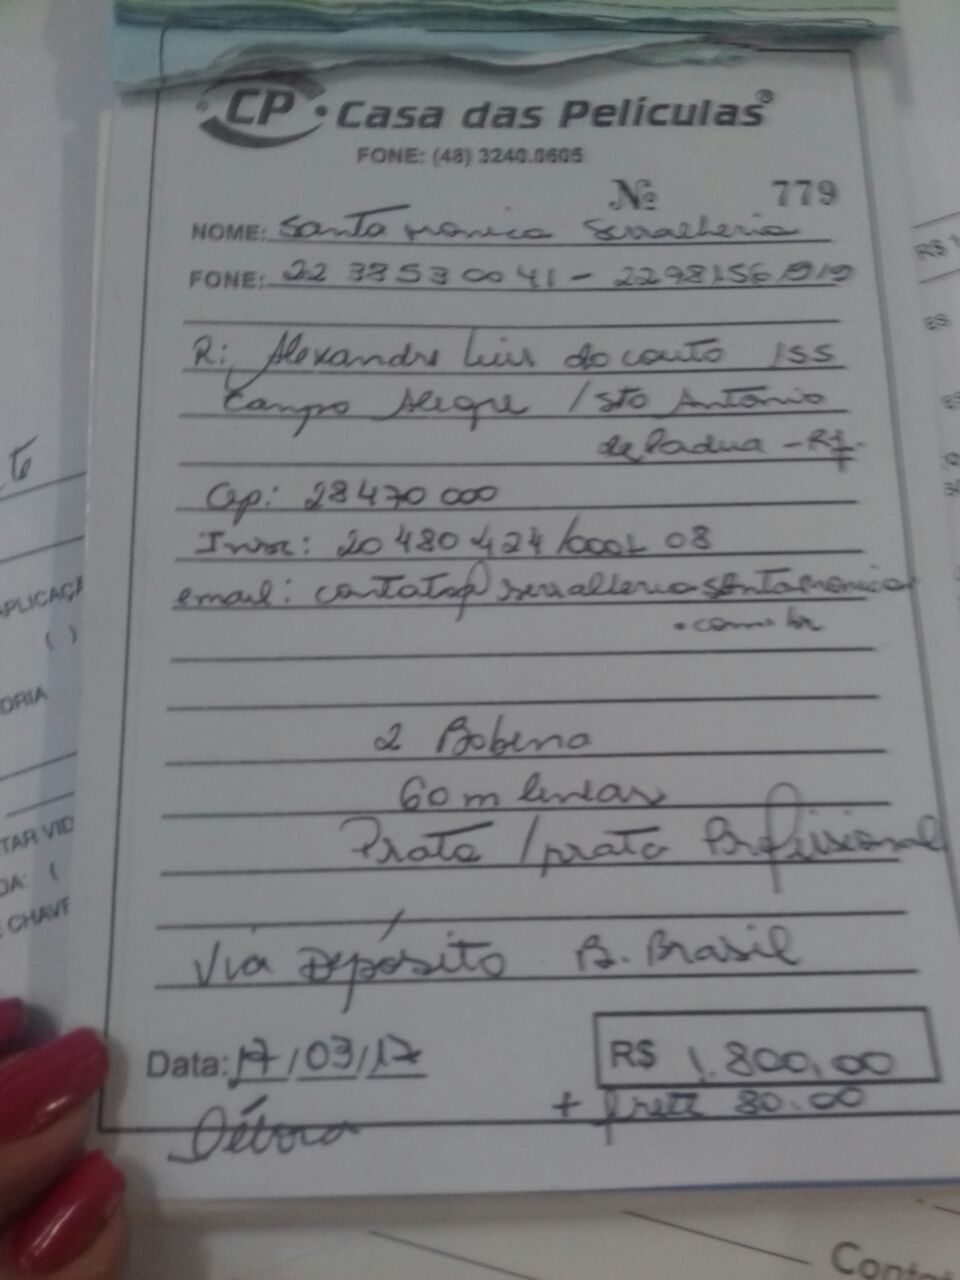 CP Casa das Películas®
FONE: (48) 3240.0605
Nº 779
NOME: Santa monica Serralheria
FONE: 22 38530041 - 22981561919
R: Alexandre Luis do couto 155
Campo Alegre / Sto Antônio
de Padua - RJ.
Cep: 28470 000
20 480 424/0001 08
email: contato@serralheriasantamonica
.com.br
2 Bobina
60 m linear
Prata / prata Profissional
Via Depósito B. Brasil
Data: 17/03/17
R$ 1.800,00
+ frete 80.00
Débora
RS 1
ES
APLICAÇÃ
( )
ORIA
TAR VID
DA: (
E CHAVE
Conta